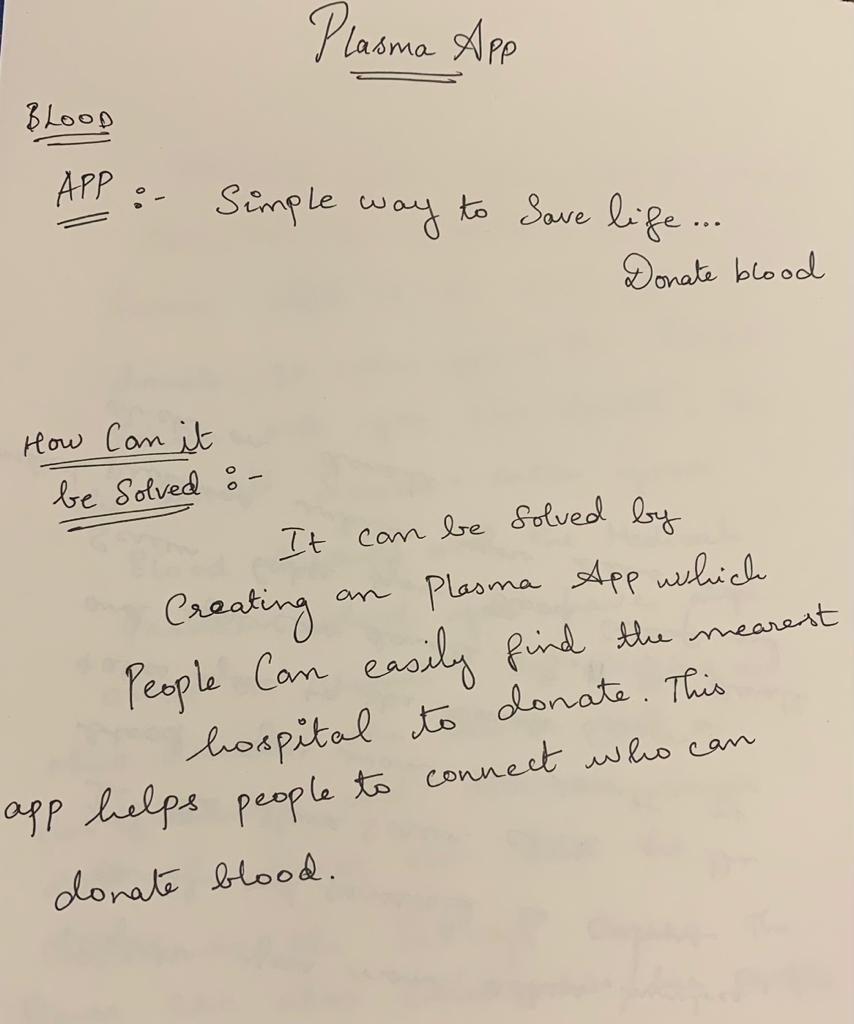 Plasma App
BLOOD
APP :- Simple way to Save life...
Donate blood
How Can it
be Solved :-
It can be Solved by
Creating an Plasma App which
People Can easily find the nearest
hospital to donate. This
app helps people to connect who can
donate blood.